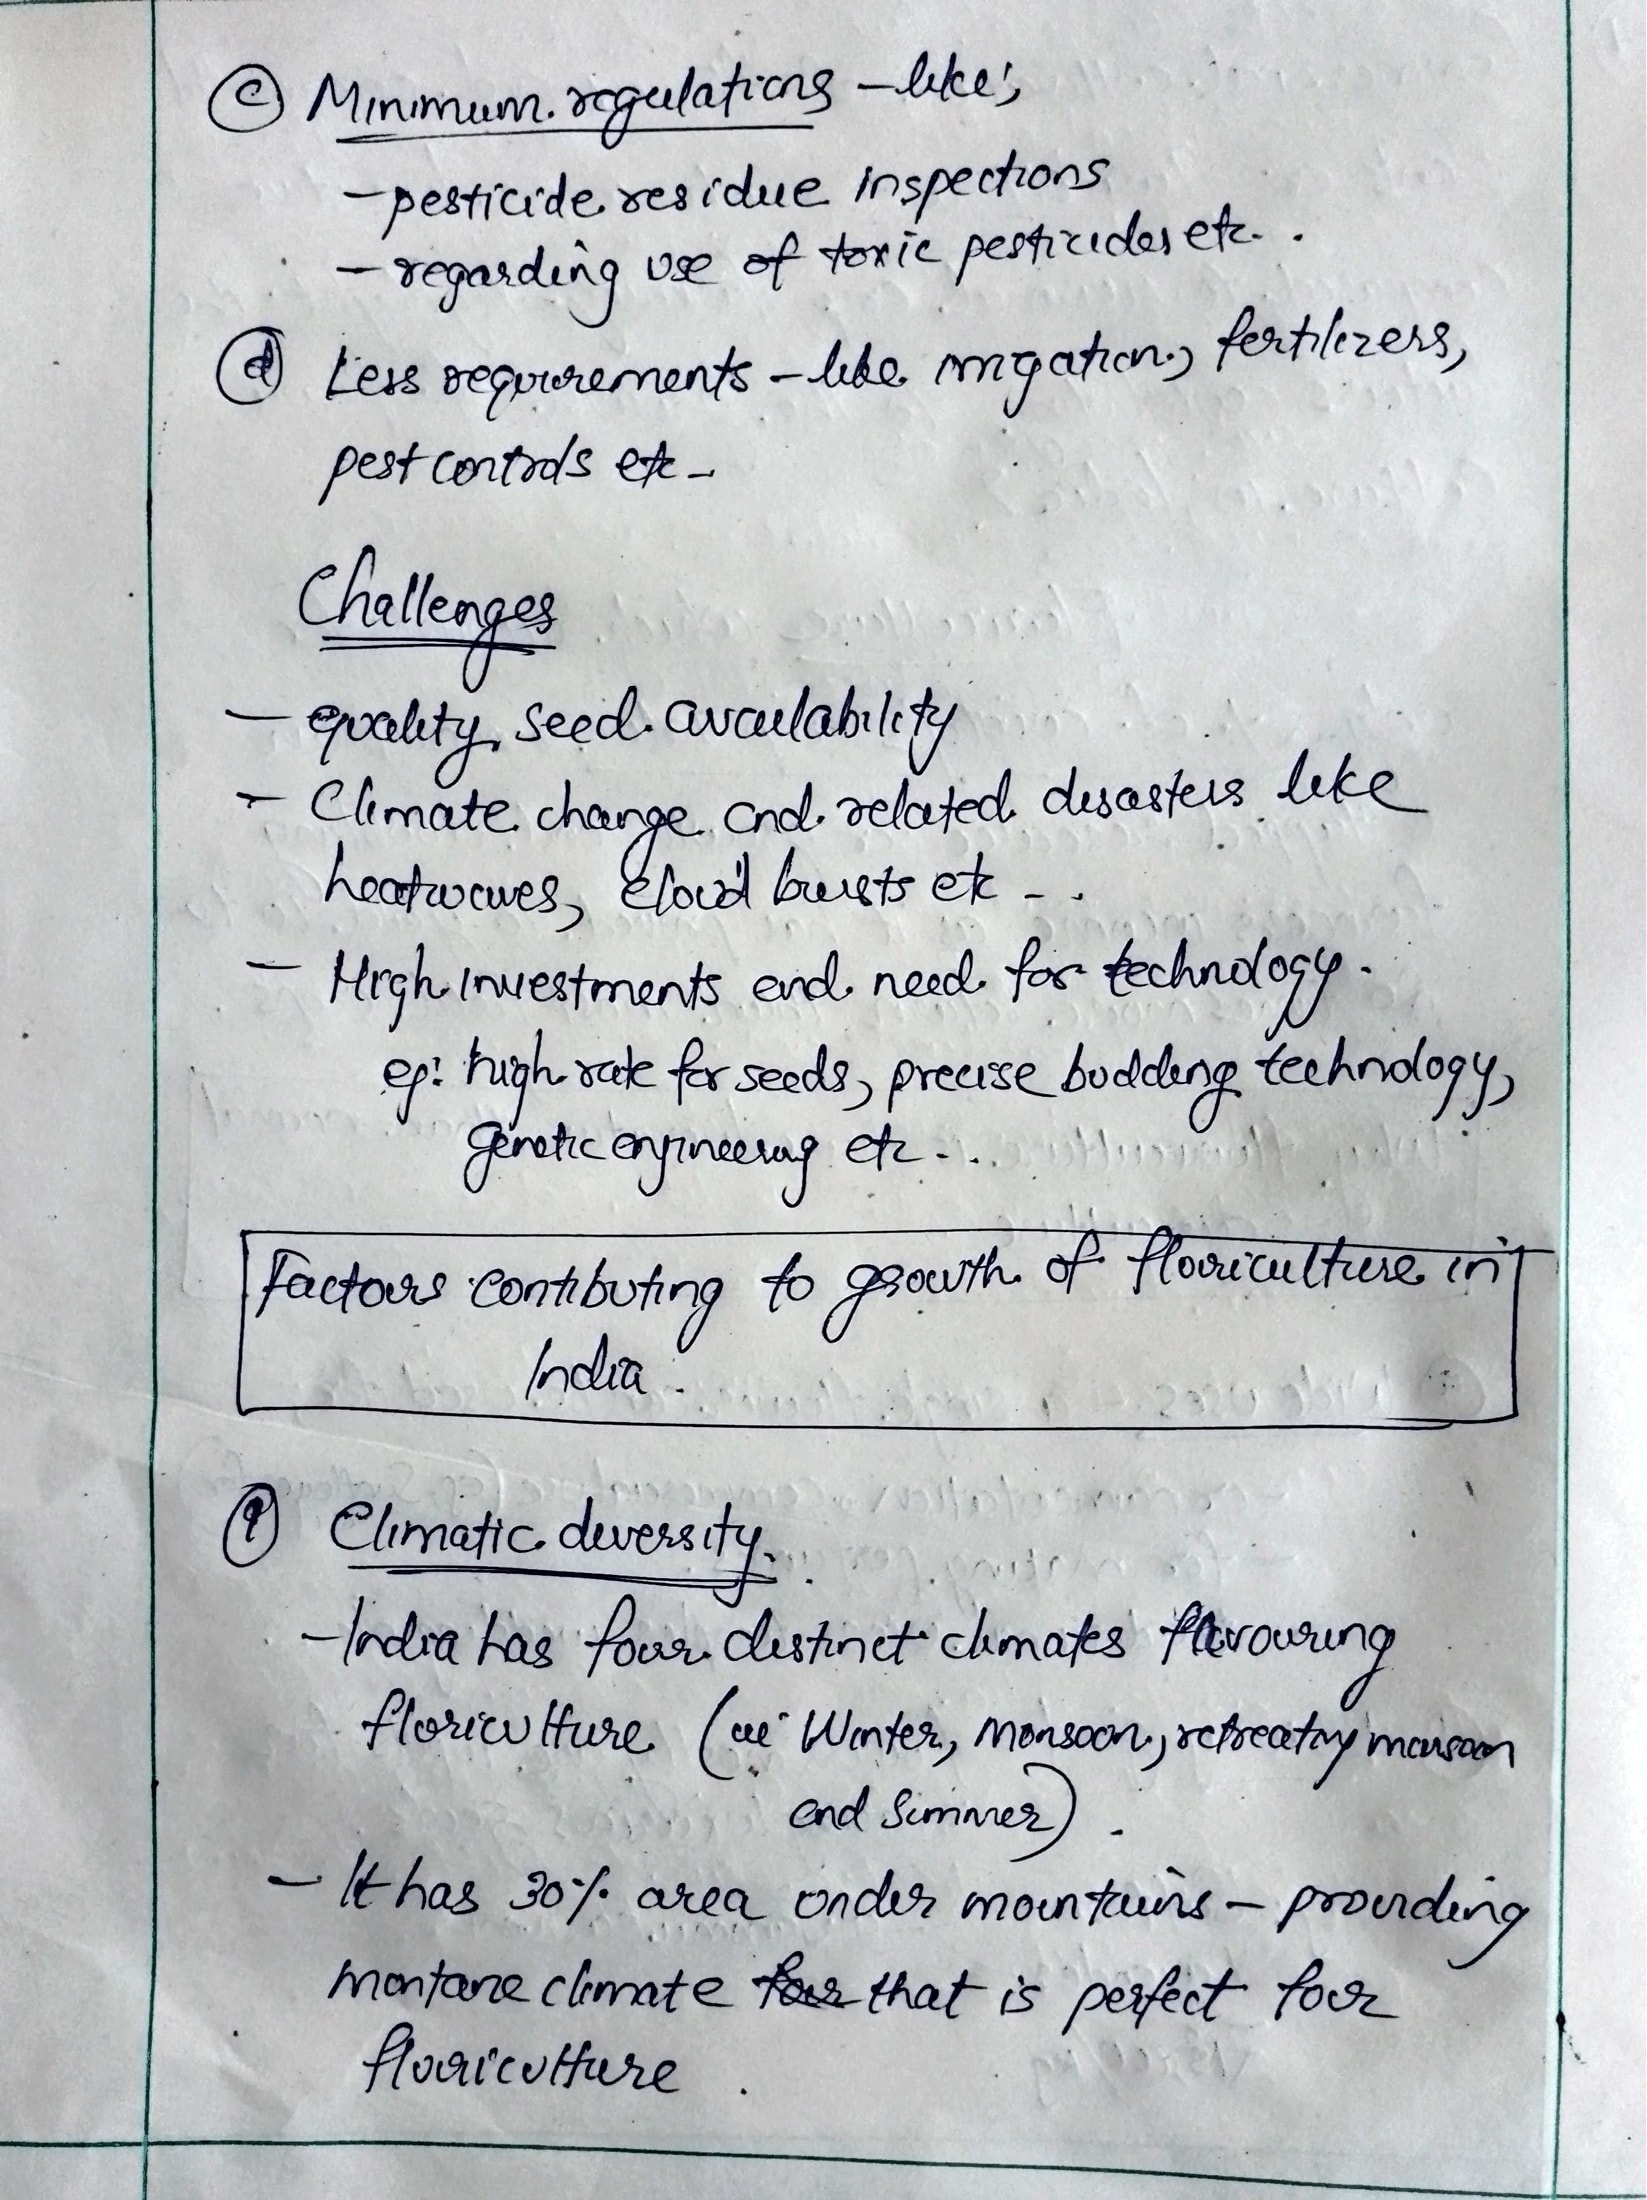 (c) Minimum regulations – like;
– pesticide residue inspections
– regarding use of toxic pesticides etc..
(d) Less requirements – like irrigation, fertilizers,
pest controls etc –
Challenges
– quality seed availability
– Climate change and related disasters like
heatwaves, cloud bursts etc – .
– High investments and need for technology.
eg: high rate for seeds, precise budding technology,
Genetic engineering etc...
Factors contibuting to growth of floriculture in
India.
Climatic diversity.
– India has four distinct climates favouring
floriculture (ie Winter, Monsoon, retreating monsoon
and Summer).
– It has 30% area under mountains – providing
montane climate that is perfect for
floriculture.